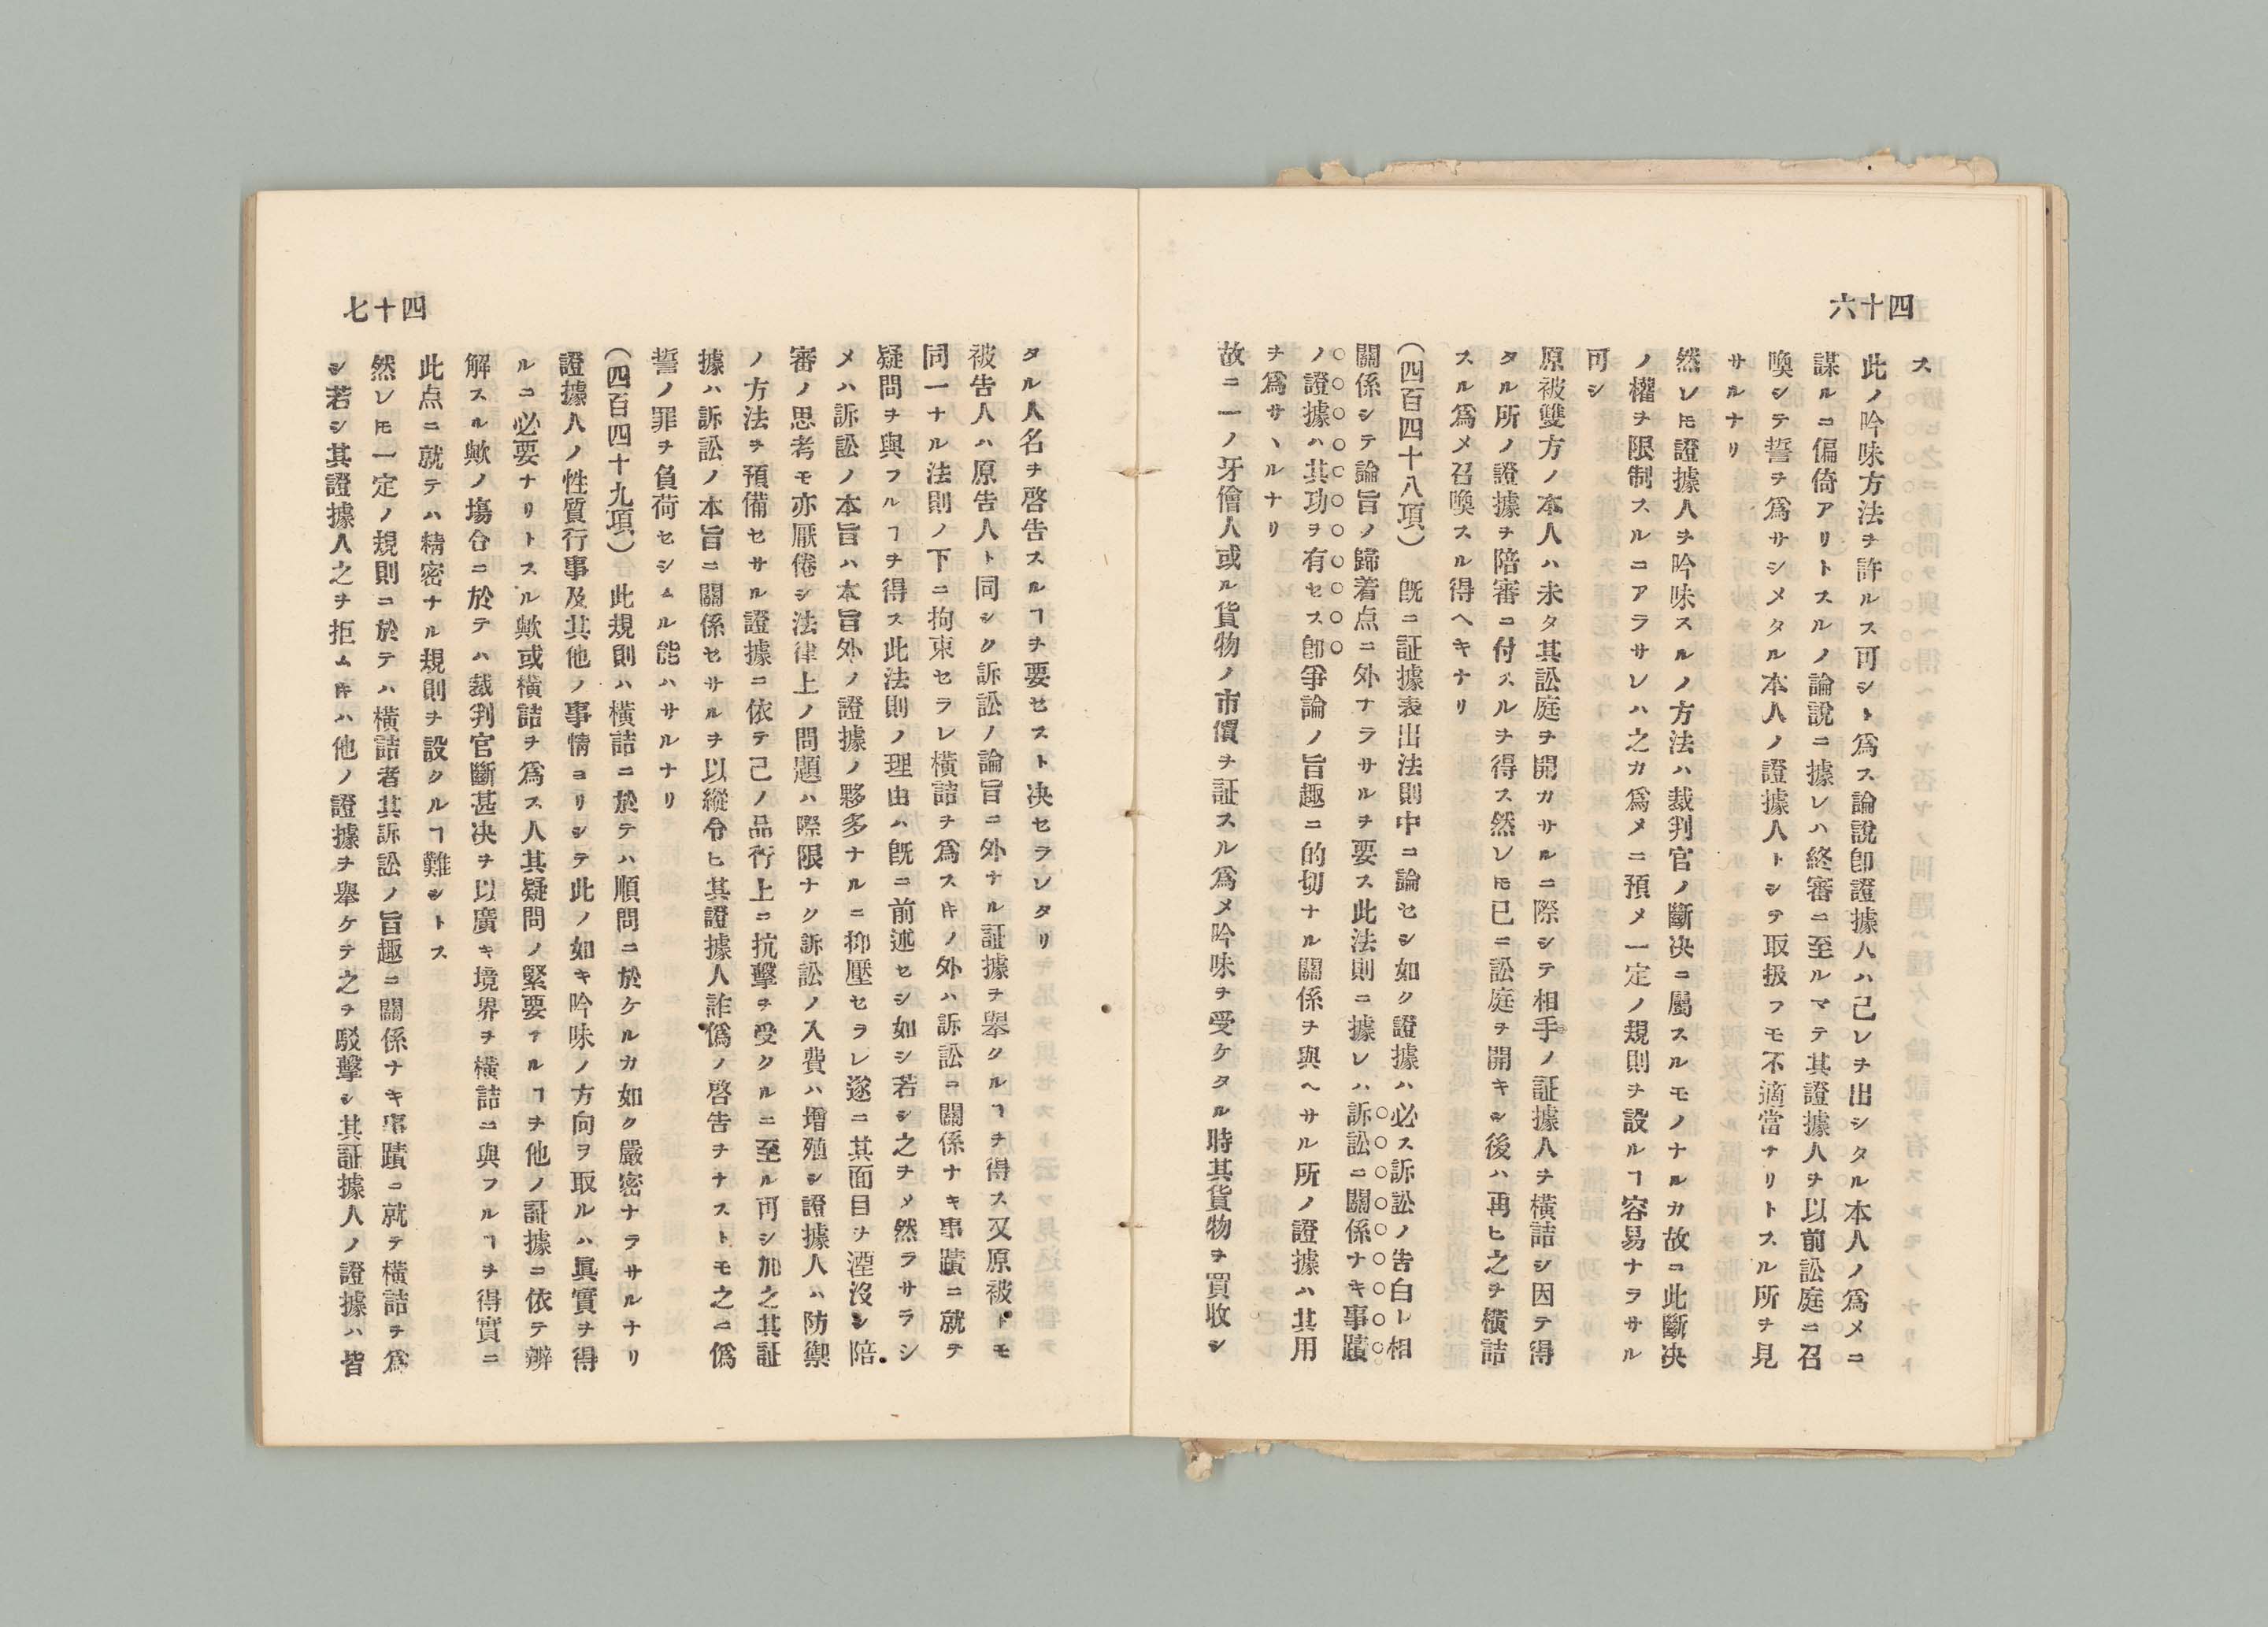 四十六
ス
此ノ吟味方法ヲ許ルス可シト爲ス論說卽證據人ハ己レヲ出シタル本人ノ爲メニ
謀ルニ偏倚アリトスルノ論說ニ據レハ終審ニ至ルマテ其證據人ヲ以前訟庭ニ召
喚シテ誓ヲ爲サシメタル本人ノ證據人トシテ取扱フモ不適當ナリトスル所ヲ見
サルナリ
然レ𪜈證據人ヲ吟味スルノ方法ハ裁判官ノ斷决ニ屬スルモノナルカ故ニ此斷决
ノ權ヲ限制スルニアラサレハ之カ爲メニ預メ一定ノ規則ヲ設ルヿ容易ナラサル
可シ
原被雙方ノ本人ハ未タ其訟庭ヲ開カサルニ際シテ相手ノ証據人ヲ橫詰シ因テ得
タル所ノ證據ヲ陪審ニ付スルヲ得ス然レ𪜈已ニ訟庭ヲ開キシ後ハ再ヒ之ヲ橫詰
スル爲メ召喚スル得ヘキナリ
(四百四十八項)　旣ニ証據表出法則中ニ論セシ如ク證據ハ必ス訴訟ノ告白ト相
關係シテ論旨ノ歸着点ニ外ナラサルヲ要ス此法則ニ據レハ訴訟ニ關係ナキ事蹟
ノ證據ハ其功ヲ有セス卽爭論ノ旨趣ニ的切ナル關係ヲ與ヘサル所ノ證據ハ其用
ヲ爲サヽルナリ
故ニ一ノ牙儈人或ル貨物ノ市價ヲ証スル爲メ吟味ヲ受ケタル時其貨物ヲ買收シ
四十七
タル人名ヲ啓告スルヿヲ要セスト决セラレタリ
被告人ハ原告人ト同シク訴訟ノ論旨ニ外ナル証據ヲ擧クルヿヲ得ス又原被トモ
同一ナル法則ノ下ニ拘束セラレ橫詰ヲ爲スキノ外ハ訴訟ニ關係ナキ事蹟ニ就テ
疑問ヲ與フルヿヲ得ス此法則ノ理由ハ旣ニ前述セシ如シ若シ之ヲメ然ラサラシ
メハ訴訟ノ本旨ハ本旨外ノ證據ノ夥多ナルニ抑壓セラレ遂ニ其面目ヲ湮沒シ陪
審ノ思考モ亦厭倦シ法律上ノ問題ハ際限ナク訴訟ノ入費ハ增殖シ證據人ハ防禦
ノ方法ヲ預備セサル證據ニ依テ己ノ品行上ニ抗擊ヲ受クルニ至ル可シ加之其証
據ハ訴訟ノ本旨ニ關係セサルヲ以縱令ヒ其證據人詐僞ノ啓告ヲナストモ之ニ僞
誓ノ罪ヲ負荷セシムル能ハサルナリ
(四百四十九項)　此規則ハ橫詰ニ於テハ順問ニ於ケルカ如ク嚴密ナラサルナリ
證據人ノ性質行事及其他ノ事情ヨリシテ此ノ如キ吟味ノ方向ヲ取ルハ眞實ヲ得
ルニ必要ナリトスル歟或橫詰ヲ爲ス人其疑問ノ緊要ナルヿヲ他ノ証據ニ依テ辨
解スル歟ノ塲合ニ於テハ裁判官斷甚决ヲ以廣キ境界ヲ橫詰ニ與フルヿヲ得實ニ
此点ニ就テハ精密ナル規則ヲ設クルヿ難シトス
然レ𪜈一定ノ規則ニ於テハ橫詰者其訴訟ノ旨趣ニ關係ナキ事蹟ニ就テ橫詰ヲ爲
シ若シ其證據人之ヲ拒ム𬼀ハ他ノ證據ヲ擧ケテ之ヲ駁擊シ其証據人ノ證據ハ皆